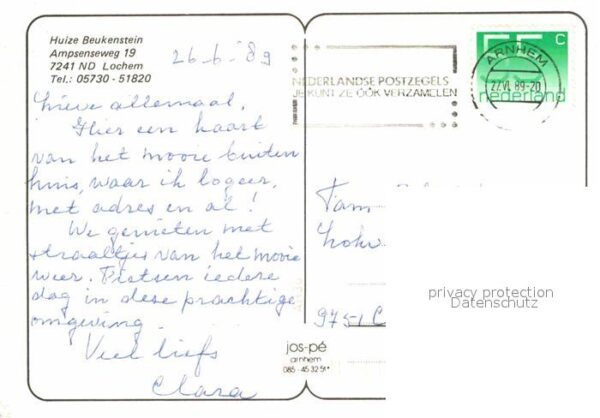 Huize Beukenstein
Ampsenseweg 19
7241 ND Lochem
Tel.: 05730 - 51820
26-6-'89
Lieve allemaal,
Hier een kaart
van het mooie buiten
huis, waar ik logeer,
met adres en al!
We genieten met
straaltjes van het mooie
weer. Fietsen iedere
dag in deze prachtige
omgeving.
Veel liefs
Clara
NEDERLANDSE POSTZEGELS
JE KUNT ZE ÓÓK VERZAMELEN
ARNHEM
27.VI.89-20
55 c
nederland
Fam
9751 C
privacy protection
Datenschutz
jos-pé
arnhem
085-45 32 51*